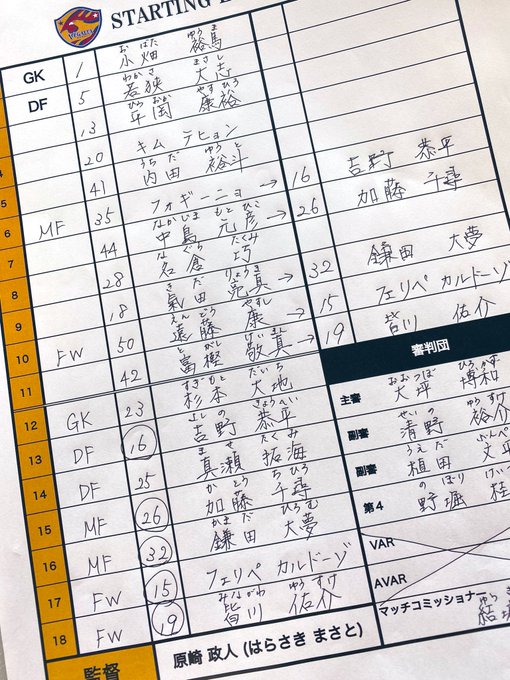 VEGALTA
STARTING
おばた ゆうま
GK 1 小畑 裕馬
わかさ まさし
DF 5 若狭 大志
ひらおか やすひろ
13 平岡 康裕
4 20 キム テヒョン
うちだ ゆうと
5 41 内田 裕斗
6 MF 35 フォギーニョ → 16 吉野 恭平
なかじま もとひこ
7 44 中島 元彦 → 26 加藤 千尋
なぐら たくみ
8 28 名倉 巧
きだ りょうま
9 18 氣田 亮真 → 32 鎌田 大夢
えんどう やすし
10 50 遠藤 康 → 15 フェリペ カルドーゾ
とがし けいまん
11 FW 42 富樫 敬真 → 19 皆川 佑介
すぎもと だいち
12 GK 23 杉本 大地
よしの きょうへい
13 DF 16 吉野 恭平
ませ たくみ
14 DF 25 真瀬 拓海
かとう ちひろ
15 MF 26 加藤 千尋
かまだ ひろむ
16 MF 32 鎌田 大夢
17 FW 15 フェリペ カルドーゾ
みながわ ゆうすけ
18 FW 19 皆川 佑介
監督 原崎 政人 (はらさき まさと)
審判団
おおつぼ ひろかず
主審 大坪 博和
せいの
副審 清野 裕介
うえだ
副審 植田 文平
のぼり
第4 野堀 桂
VAR
AVAR
マッチコミッショナー